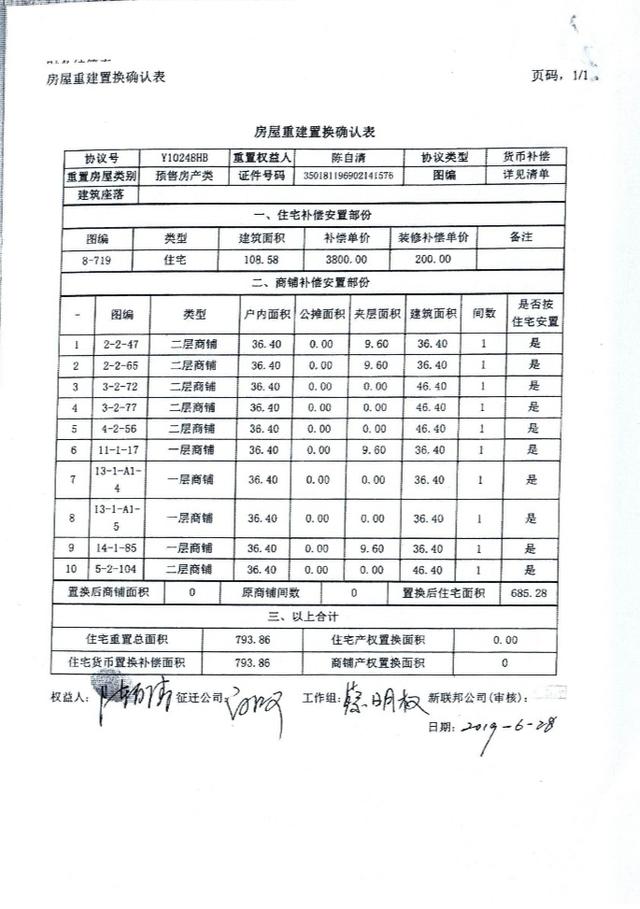 房屋重建置换确认表 页码, 1/1
房屋重建置换确认表
协议号 Y10248HB 重置权益人 陈自清 协议类型 货币补偿
重置房屋类别 预售房产类 证件号码 350181196902141576 图编 详见清单
建筑座落
一、住宅补偿安置部份
图编 类型 建筑面积 补偿单价 装修补偿单价 备注
8-719 住宅 108.58 3800.00 200.00
二、商铺补偿安置部份
- 图编 类型 户内面积 公摊面积 夹层面积 建筑面积 间数 是否按
住宅安置
1 2-2-47 二层商铺 36.40 0.00 9.60 36.40 1 是
2 2-2-65 二层商铺 36.40 0.00 9.60 36.40 1 是
3 3-2-72 二层商铺 36.40 0.00 0.00 46.40 1 是
4 3-2-77 二层商铺 36.40 0.00 0.00 46.40 1 是
5 4-2-56 二层商铺 36.40 0.00 0.00 46.40 1 是
6 11-1-17 一层商铺 36.40 0.00 9.60 36.40 1 是
7 I3-1-A1-
4 一层商铺 36.40 0.00 0.00 36.40 1 是
8 I3-1-A1-
5 一层商铺 36.40 0.00 0.00 36.40 1 是
9 14-1-85 一层商铺 36.40 0.00 9.60 36.40 1 是
10 5-2-104 二层商铺 36.40 0.00 0.00 46.40 1 是
置换后商铺面积 0 原商铺间数 0 置换后住宅面积 685.28
三、以上合计
住宅重置总面积 793.86 住宅产权置换面积 0.00
住宅货币置换补偿面积 793.86 商铺产权置换面积 0
权益人: 征迁公司: 工作组: 蔡明权 新联邦公司(审核):
日期: 2019-6-28